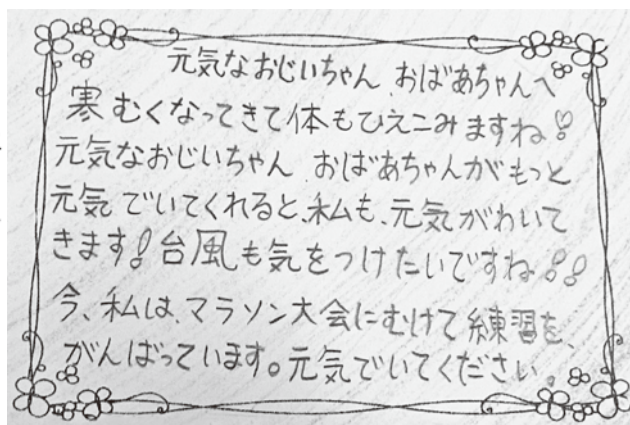 元気なおじいちゃん、おばあちゃんへ
寒むくなってきて体もひえこみますね!
元気なおじいちゃん おばあちゃんがもっと
元気でいてくれると、私も、元気がわいて
きます!台風も気をつけたいですね!!
今、私は、マラソン大会にむけて練習を、
がんばっています。元気でいてください。